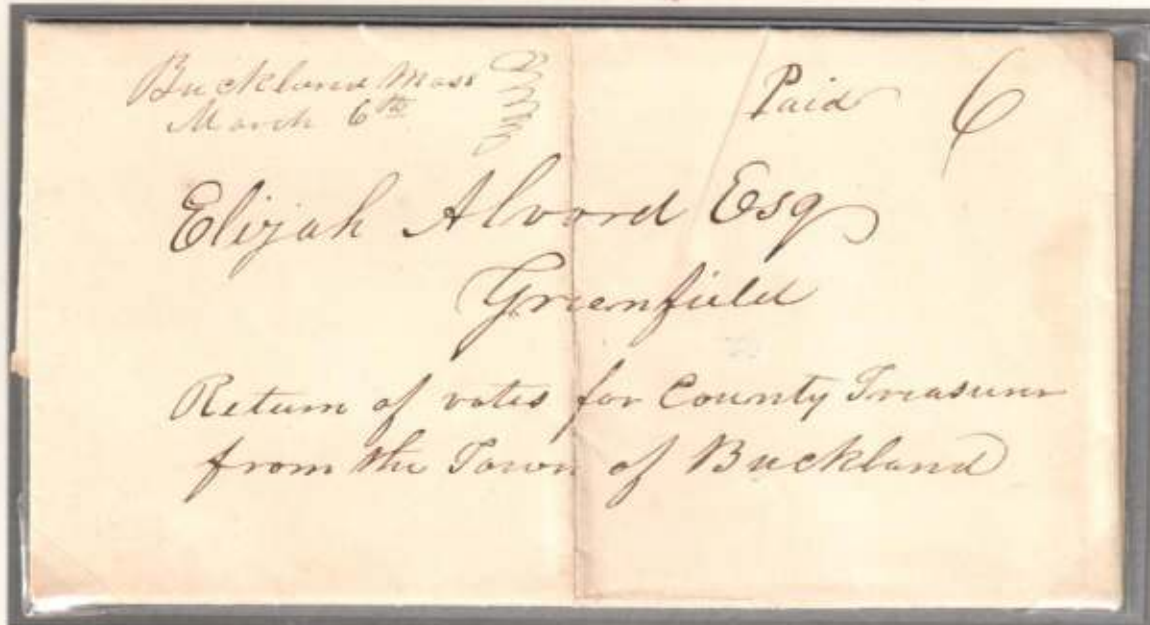 Buckland Mass
March 6th
Paid 6
Elijah Alvord Esq
Greenfield
Return of votes for County Treasurer
from the Town of Buckland